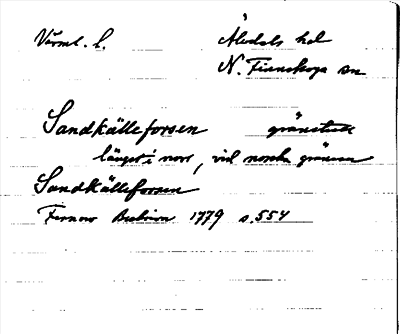 Värml. l. Älvdals hd
N. Finnskoga sn
Sandkälleforsen gränsställe
längst i norr, vid norska gränsen
Sandkälleforsen
Fernow Beskrivn 1779 s. 554